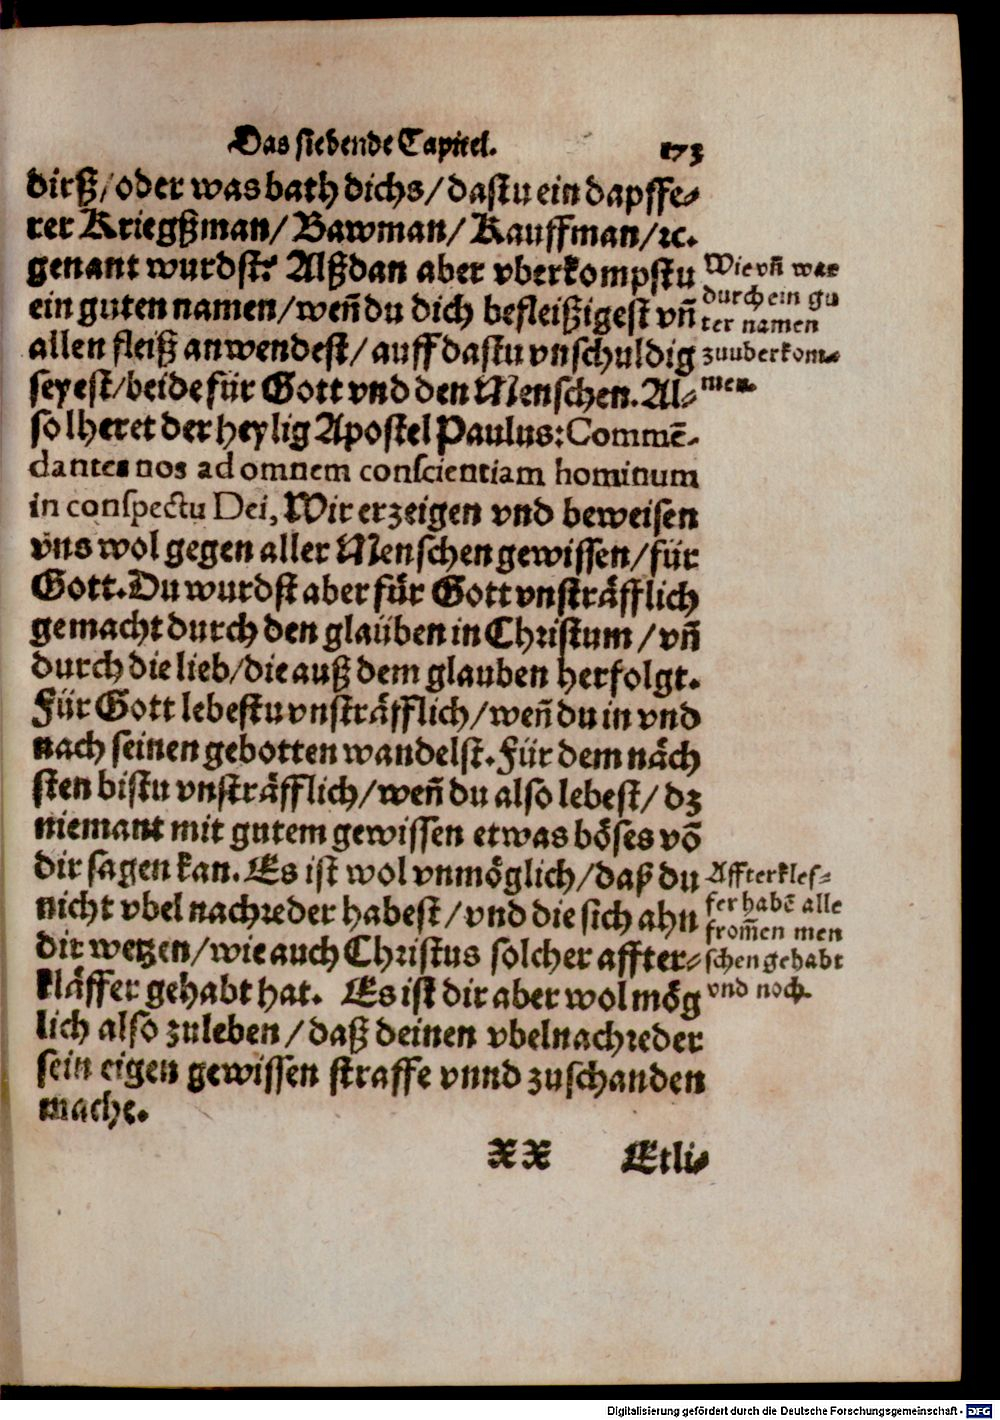 Das siebende Capitel. 173
dirß/oder was bath dichs/dastu ein dapffe-
rer Kriegßman/ Bawman/ Kauffman/ꝛc.
genant wurdst? Alßdan aber vberkompstu
ein guten namen/weñ du dich befleißigest vñ
allen fleiß anwendest/auff dastu vnschuldig
seyest/beide für Gott vnd den Menschen. Al-
so lheret der heylig Apostel Paulus: Commē-
dantes nos ad omnem conscientiam hominum
in conspectu Dei, Wir erzeigen vnd beweisen
vns wol gegen aller Menschen gewissen/für
Gott. Du wurdst aber für Gott vnsträfflich
gemacht durch den glauben in Christum/vñ
durch die lieb/die auß dem glauben herfolgt.
Für Gott lebestu vnsträfflich/weñ du in vnd
nach seinen gebotten wandelst. Für dem näch
sten bistu vnsträfflich/weñ du also lebest/ dz
niemant mit gutem gewissen etwas böses võ
dir sagen kan. Es ist wol vnmöglich/daß du
nicht vbel nachreder habest/vnd die sich ahn
dir wetzen/wie auch Christus solcher affter-
kläffer gehabt hat. Es ist dir aber wol mög
lich also zuleben/daß deinen vbelnachreder
sein eigen gewissen straffe vnnd zuschanden
mache.
Wie vñ war
durch ein gu
ter namen
zuuberkom-
men.
Affterklef-
fer habē alle
from̄en men
schen gehabt
vnd noch.
XX Etli-
Digitalisierung gefördert durch die Deutsche Forschungsgemeinschaft - DFG